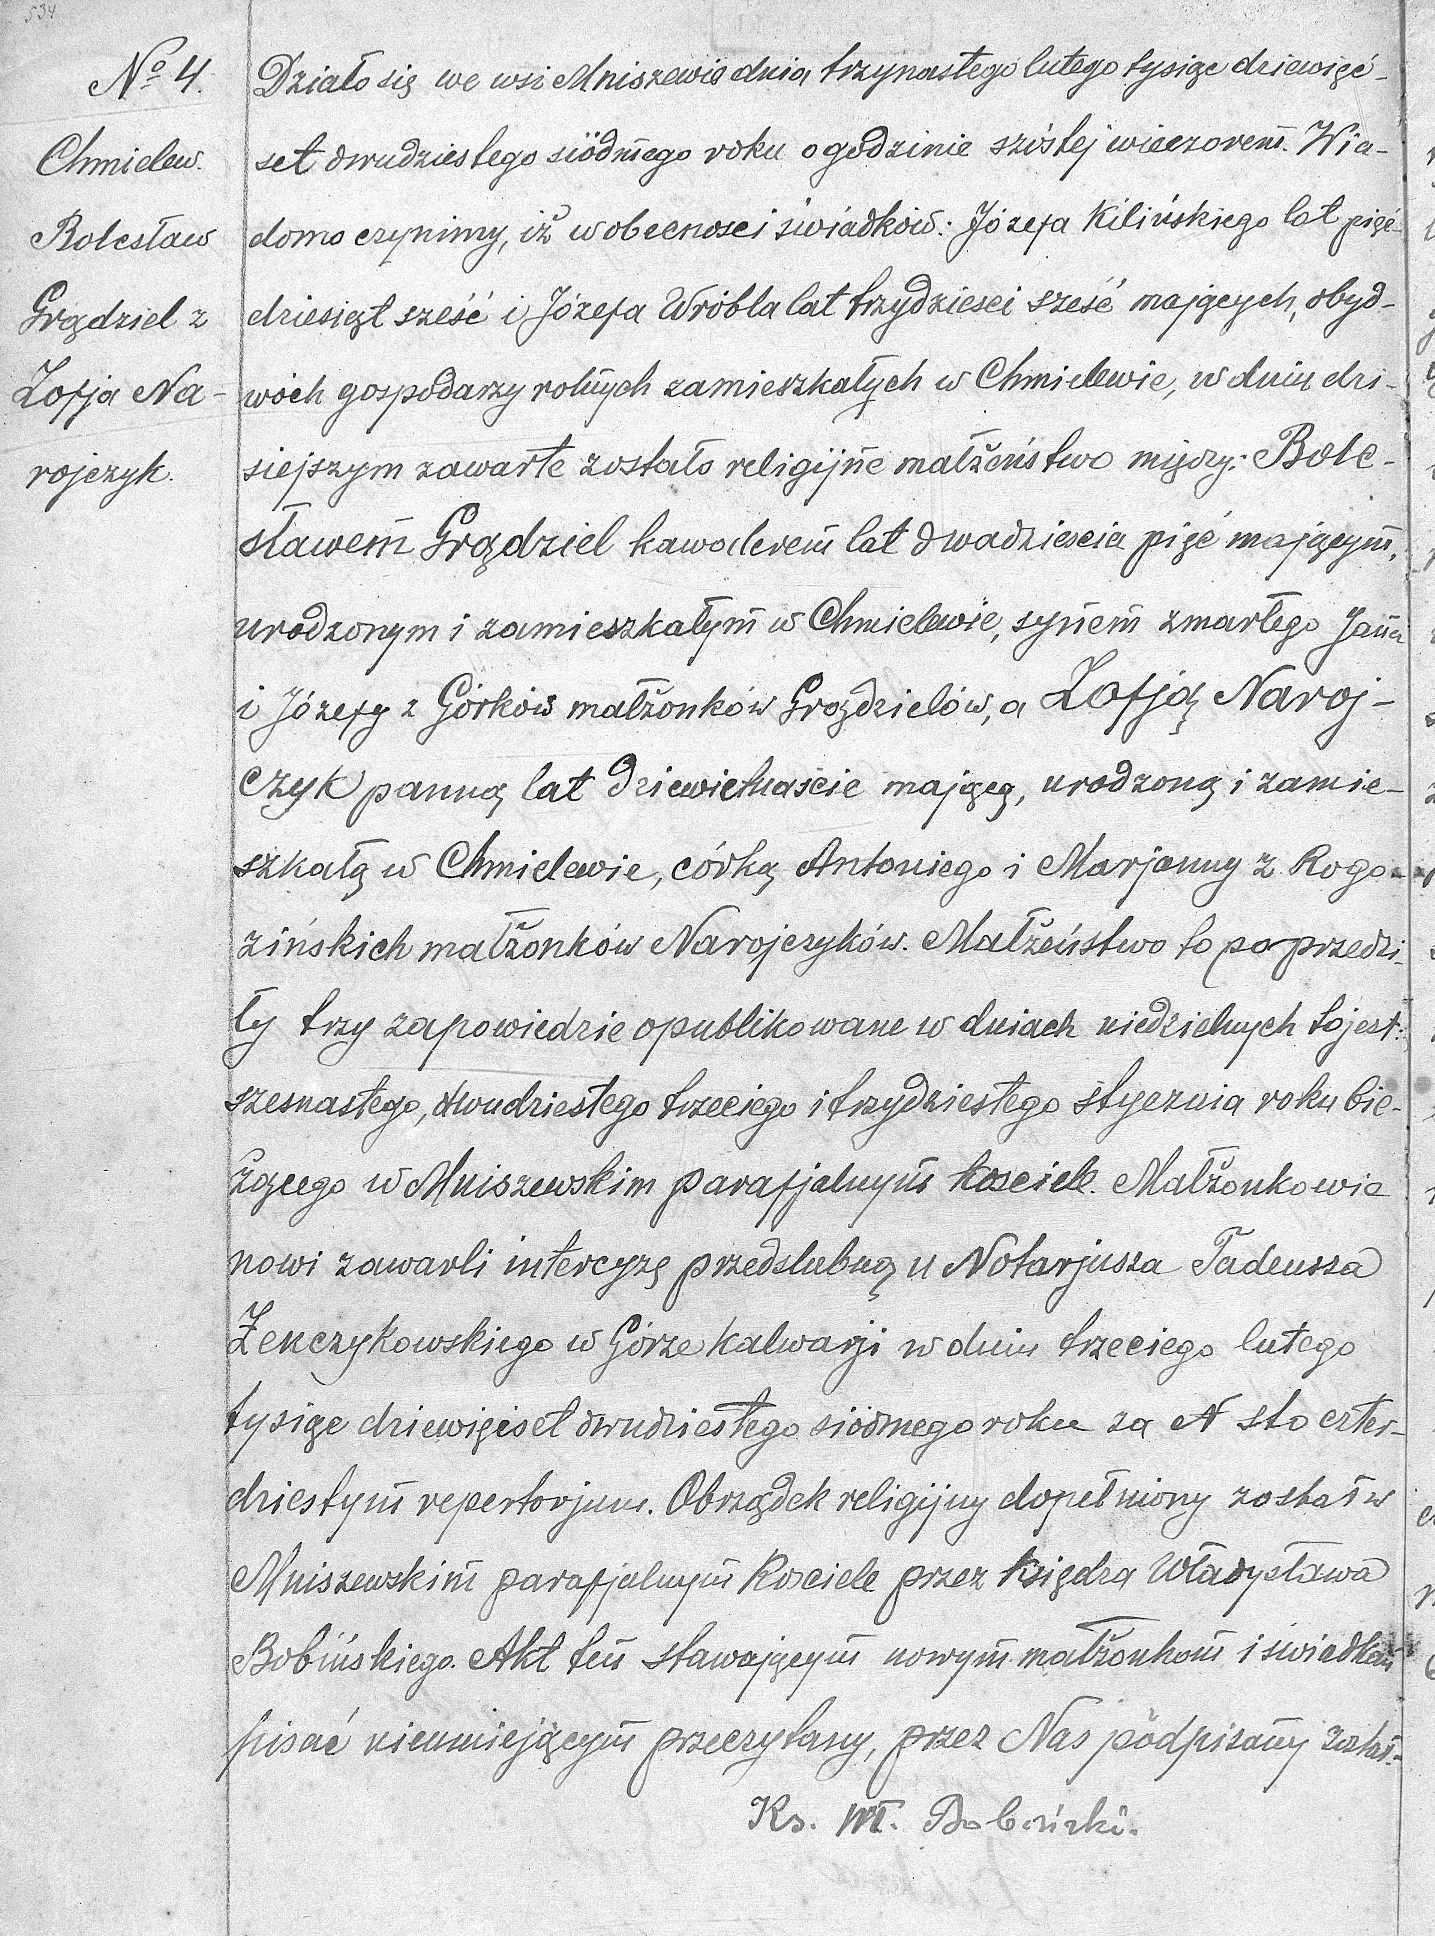 534
No 4.
Chmielew.
Bolesław
Grązdziel z
Zofją Na-
rojczyk.
Działo się we wsi Mniszewie dnia trzynastego lutego tysiąc dziewięć-
set dwudziestego siódmego roku o godzinie szóstej wieczorem. Wia-
domo czynimy, iż w obecności świadków: Józefa Kilińskiego lat pięć-
dziesiąt sześć i Józefa Wróbla lat trzydzieści sześć mających, obyd-
wóch gospodarzy rolnych zamieszkałych w Chmielewie, w dniu dzi-
siejszym zawarte zostało religijne małżeństwo między: Bole-
sławem Grązdziel kawalerem lat dwadzieścia pięć mającym,
urodzonym i zamieszkałym w Chmielewie, synem zmarłego Jana
i Józefy z Górków małżonków Grązdzielów, a Zofją Naroj-
czyk panną lat dziewiętnaście mającą, urodzoną i zamie-
szkałą w Chmielewie, córką Antoniego i Marjanny z Rogo-
zińskich małżonków Narojczyków. Małżeństwo to poprzedzi-
ły trzy zapowiedzie opublikowane w dniach niedzielnych to jest:
szesnastego, dwudziestego trzeciego i trzydziestego stycznia roku bie-
żącego w Mniszewskim parafjalnym kościele. Małżonkowie
nowi zawarli intercyzę przedślubną u Notarjusza Tadeusza
Zenczykowskiego w Górze Kalwarji w dniu trzeciego lutego
tysiąc dziewięćset dwudziestego siódmego roku za N sto czter-
dziestym repertorjum. Obrządek religijny dopełniony został w
Mniszewskim parafjalnym Kościele przez Księdza Władysława
Bobińskiego. Akt ten stawającym nowym małżonkom i świadkom
pisać nieumiejącym przeczytany, przez Nas podpisany został.-
Ks. Wł. Bobiński.